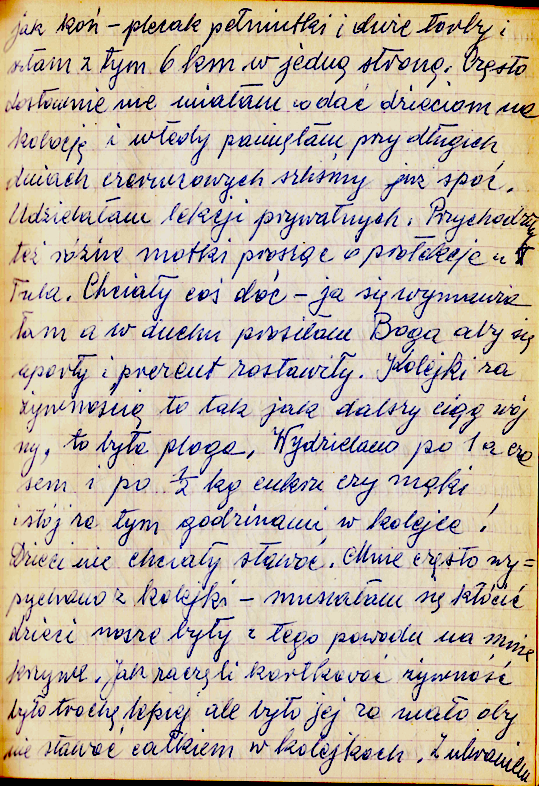 jak koń – plecak pełniutki i dwie torby i
szłam z tym 6 km w jedną stronę. Często
dosłownie nie miałam co dać dzieciom na
kolację i wtedy pamiętam przy długich
dniach czerwcowych szliśmy już spać.
Udzielałam lekcji prywatnych. Przychodziły
też różne matki prosząc o protekcję u
Tula. Chciały coś dać – ja się wymawia
łam a w duchu prosiłam Boga aby się
uparły i prezent zostawiły. Kolejki za
żywnością to tak jak dalszy ciąg woj
ny, to była plaga. Wydzielano po 1 a cza
sem i po ½ kg cukru czy mąki
i stój za tym godzinami w kolejce!
Dzieci nie chciały stawać. Mnie często wy=
pychano z kolejki – musiałam się kłócić
dzieci nasze były z tego powodu na mnie
krzywe. Jak zaczęli kartkować żywność
było trochę lepiej ale było jej za mało aby
nie stawać całkiem w kolejkach. Z ubraniem